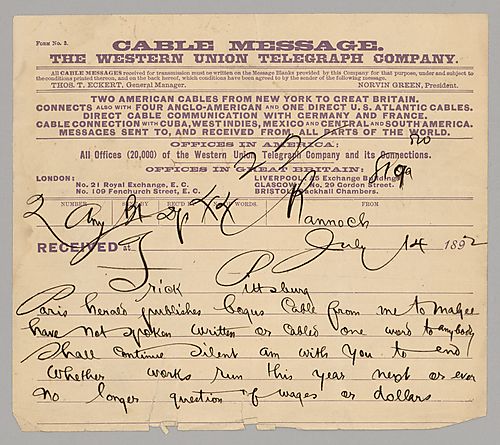 FORM No. 2.
CABLE MESSAGE.
THE WESTERN UNION TELEGRAPH COMPANY.
All CABLE MESSAGES received for transmission must be written on the Message Blanks provided by this Company for that purpose, under and subject to
the conditions printed thereon, and on the back hereof, which conditions have been agreed to by the sender of the following message.
THOS. T. ECKERT, General Manager. NORVIN GREEN, President.
TWO AMERICAN CABLES FROM NEW YORK TO GREAT BRITAIN.
CONNECTS ALSO WITH FOUR ANGLO-AMERICAN AND ONE DIRECT U. S. ATLANTIC CABLES.
DIRECT CABLE COMMUNICATION WITH GERMANY AND FRANCE.
CABLE CONNECTION WITH CUBA, WEST INDIES, MEXICO AND CENTRAL AND SOUTH AMERICA.
MESSAGES SENT TO, AND RECEIVED FROM ALL PARTS OF THE WORLD.
OFFICES IN AMERICA:
All Offices (20,000) of the Western Union Telegraph Company and its Connections.
OFFICES IN GREAT BRITAIN:
LONDON: LIVERPOOL: Exchange Buildings
No. 21 Royal Exchange, E. C. GLASGOW: No. 29 Gordon Street.
No. 109 Fenchurch Street, E. C. BRISTOL: Backhall Chambers.
NUMBER REC'D WORDS. FROM
2 44 Rannoch
RECEIVED at July 14 1892
Frick Pittsburg
Paris herald publishes bogus Cable from me to Magee
have not spoken written or Cabled one word to anybody
Shall Continue Silent am with You to end
Whether works run this year next or ever
No longer question of wages or dollars